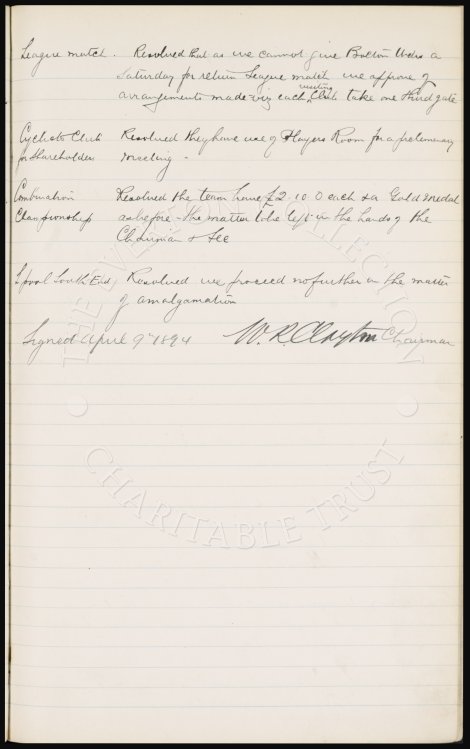 League match. Resolved that as we cannot give Bolton Wdrs a
Saturday for return League match we approve of
arrangements made viz each visiting Club take one third gate
Cyclists Club Resolved they have use of Players Room for a preliminary
for Shareholders meeting -
Combination Resolved the team have £2.10.0 each & a Gold medal
Championship as before - the matter to be left in the hands of the
Chairman & Sec
L'pool South End Resolved we proceed no further in the matter
of amalgamation
Signed April 9th 1894 W. R. Clayton Chairman
THE EVERTON COLLECTION
CHARITABLE TRUST